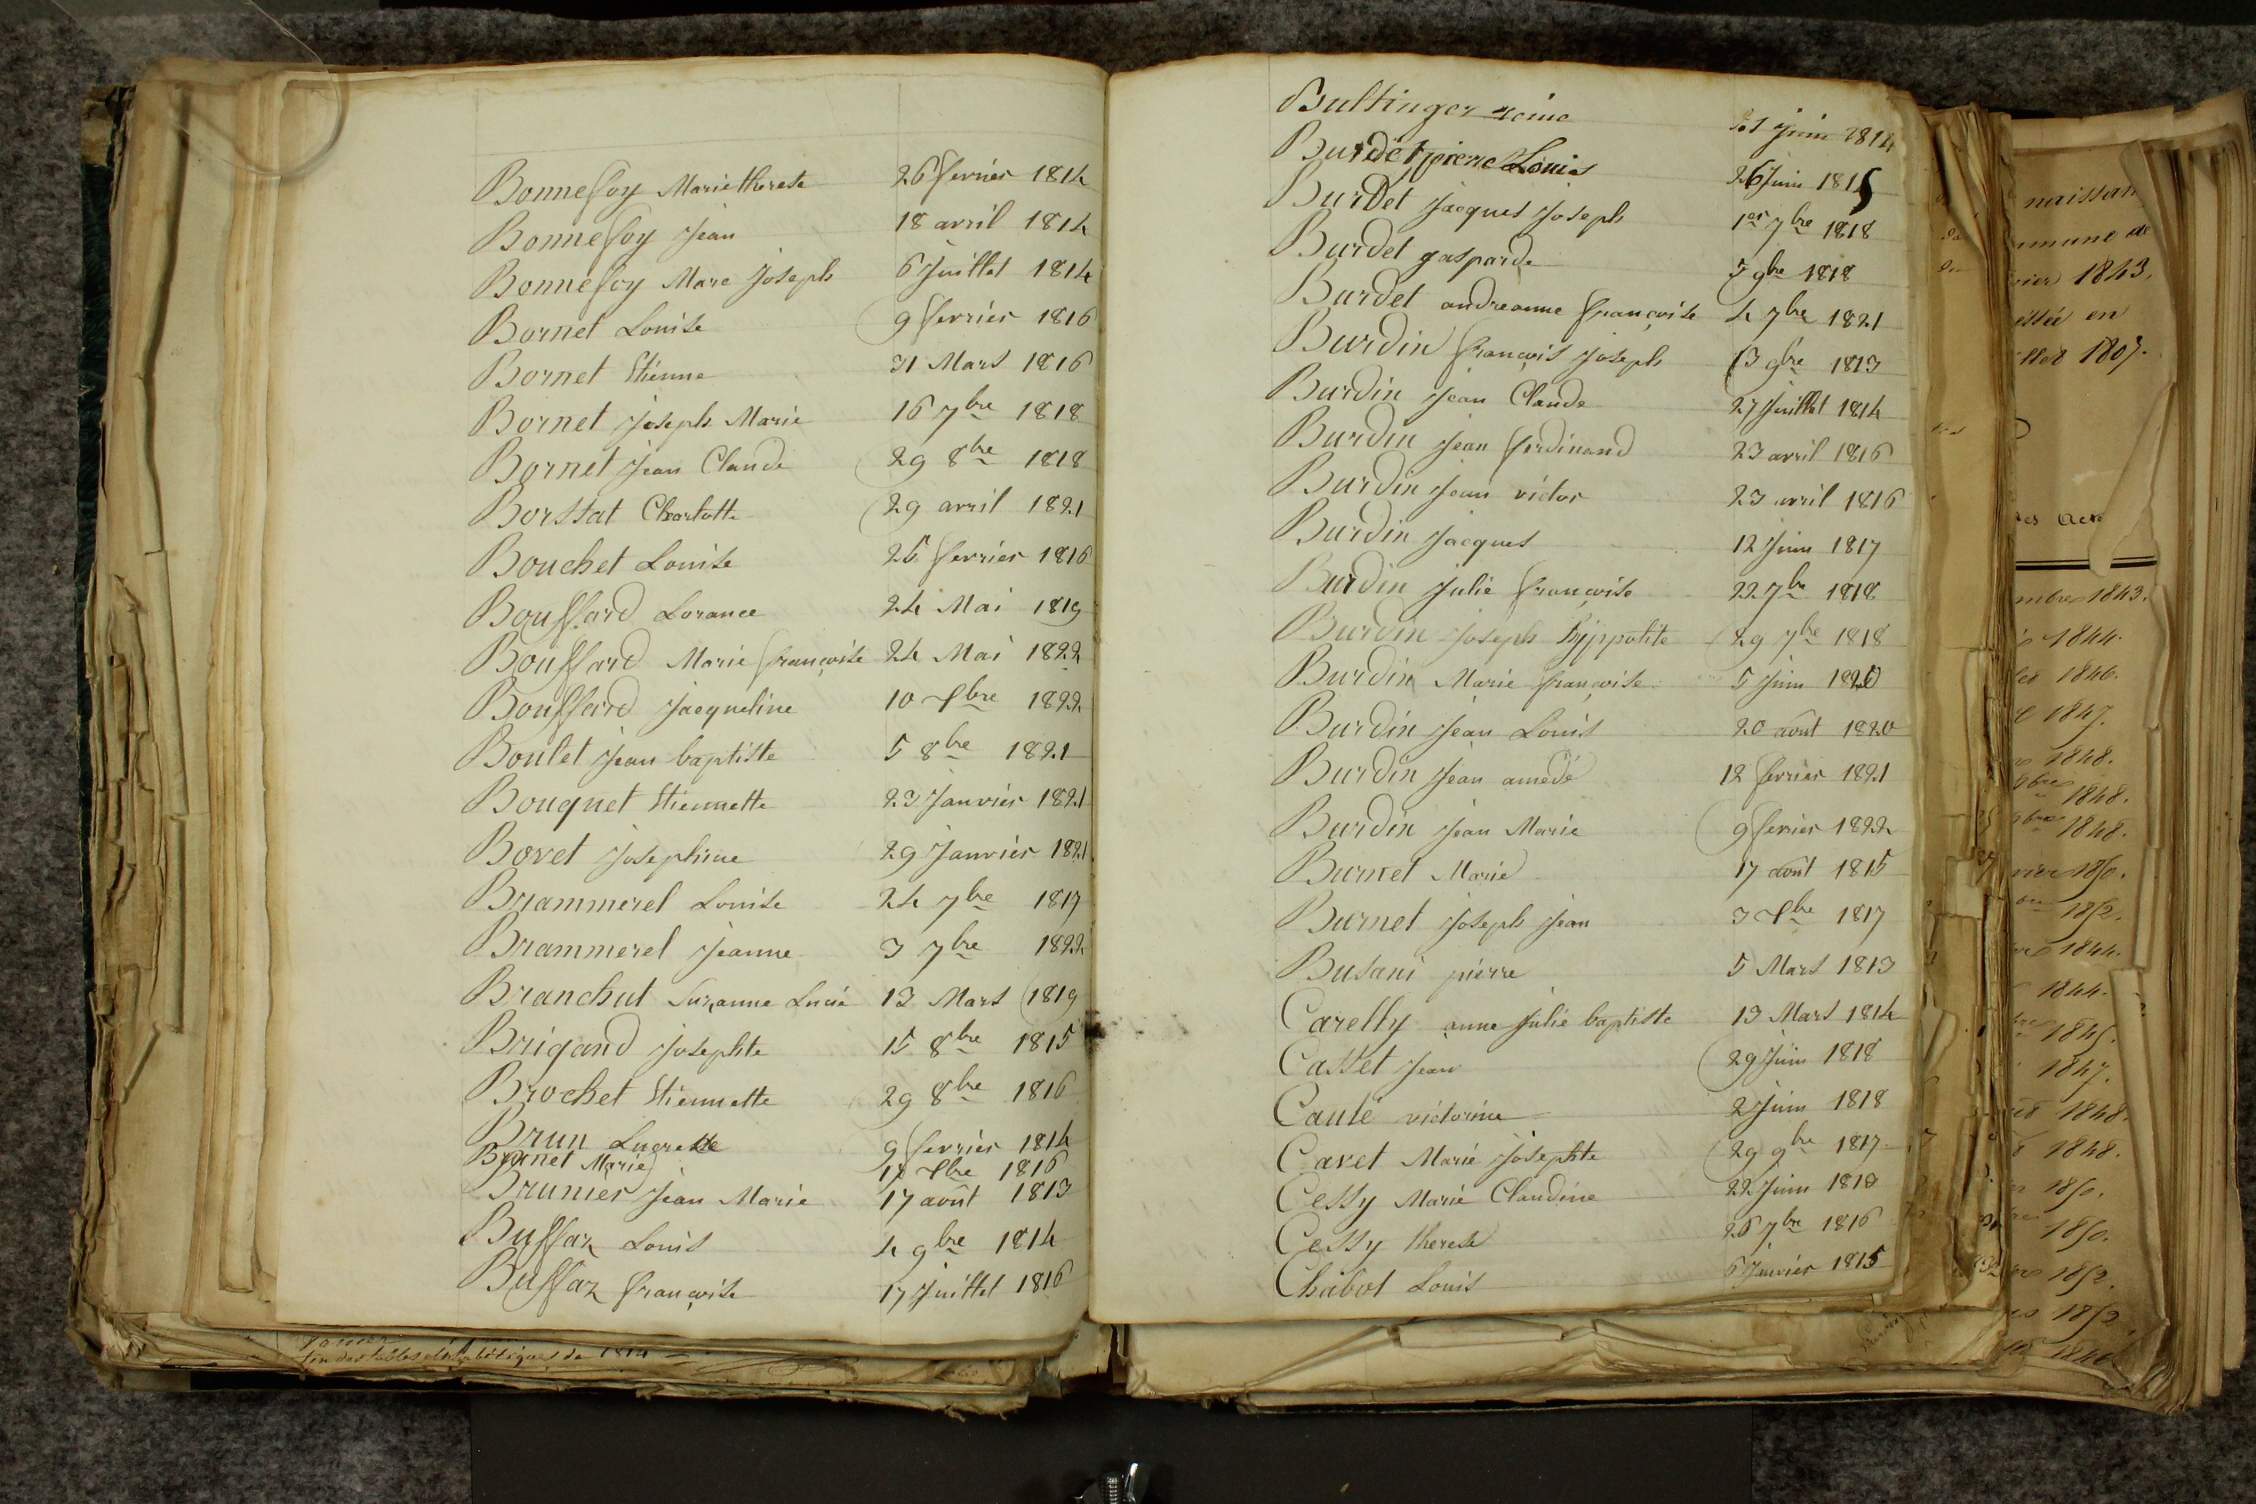 Bonnefoy Marie therese 26 fevrier 1814
Bonnefoy Jean 18 avril 1814
Bonnefoy Marc Joseph 6 Juillet 1814
Bornet Louise 9 fevrier 1816
Bornet Etienne 31 Mars 1816
Bornet Joseph Marie 16 7bre 1818
Bornet Jean Claude 29 8bre 1818
Borstat Charlotte 29 avril 1821
Bouchet Louise 25 fevrier 1816
Bouffard Lorance 24 Mai 1819
Bouffard Marie françoise 24 Mai 1822
Bouffard Jacqueline 10 Xbre 1822
Boulet Jean baptiste 5 8bre 1821
Bouquet Etiennette 23 Janvier 1821
Bovet Josephine 29 Janvier 1821
Brammerel Louise 24 7bre 1817
Brammerel Jeanne 3 7bre 1822
Branchut Suzanne Lucie 13 Mars 1819
Brigand Josephte 15 8bre 1815
Brochet Etiennette 29 8bre 1816
Brun 9 fevrier 1814
Brunet Marie Xbre 1816
Brunier Jean Marie 17 août 1813
Buffaz Louis 4 9bre 1814
Buffaz françoise 17 Juillet 1816
fin des tables alphabétiques de 1812
Bultinger reine juin 1814
Burdet pierre Louis 26 Juin 1815
Burdet Jacques Joseph 1er 7bre 1818
Burdet gasparde 5 9bre 1818
Burdet andreanne françoise 4 7bre 1821
Burdin françois Joseph 13 9bre 1813
Burdin Jean Claude 27 Juillet 1814
Burdin Jean ferdinand 23 avril 1816
Burdin Jean victor 23 avril 1816
Burdin Jacques 12 Juin 1817
Burdin Julie françoise 22 7bre 1818
Burdin Joseph hyppolite 29 7bre 1818
Burdin Marie françoise 5 Juin 1820
Burdin Jean Louis 20 août 1820
Burdin Jean amédé 12 fevrier 1821
Burdin Jean Marie 9 fevrier 1822
Burnet Marie 17 août 1815
Burnet Joseph Jean 3 Xbre 1817
Busani pierre 5 Mars 1813
Carelly anne Julie baptiste 13 Mars 1814
Casset Jean 29 Juin 1818
Caulé victorine 2 Juin 1818
Cavet Marie Josephte 29 9bre 1817
Cessy Marie Claudine 22 Juin
Cessy therese 26 7bre 1816
Chabot Louis 6 Janvier 1815
naissan
mmune de
vrier 1843.
en
1807.
des acte
mbre 1843.
1844.
1846.
1847.
1848.
9bre 1848.
1848.
1850.
1852.
1844.
1844.
1845.
1847.
1848.
1848.
1850.
1850.
1852.